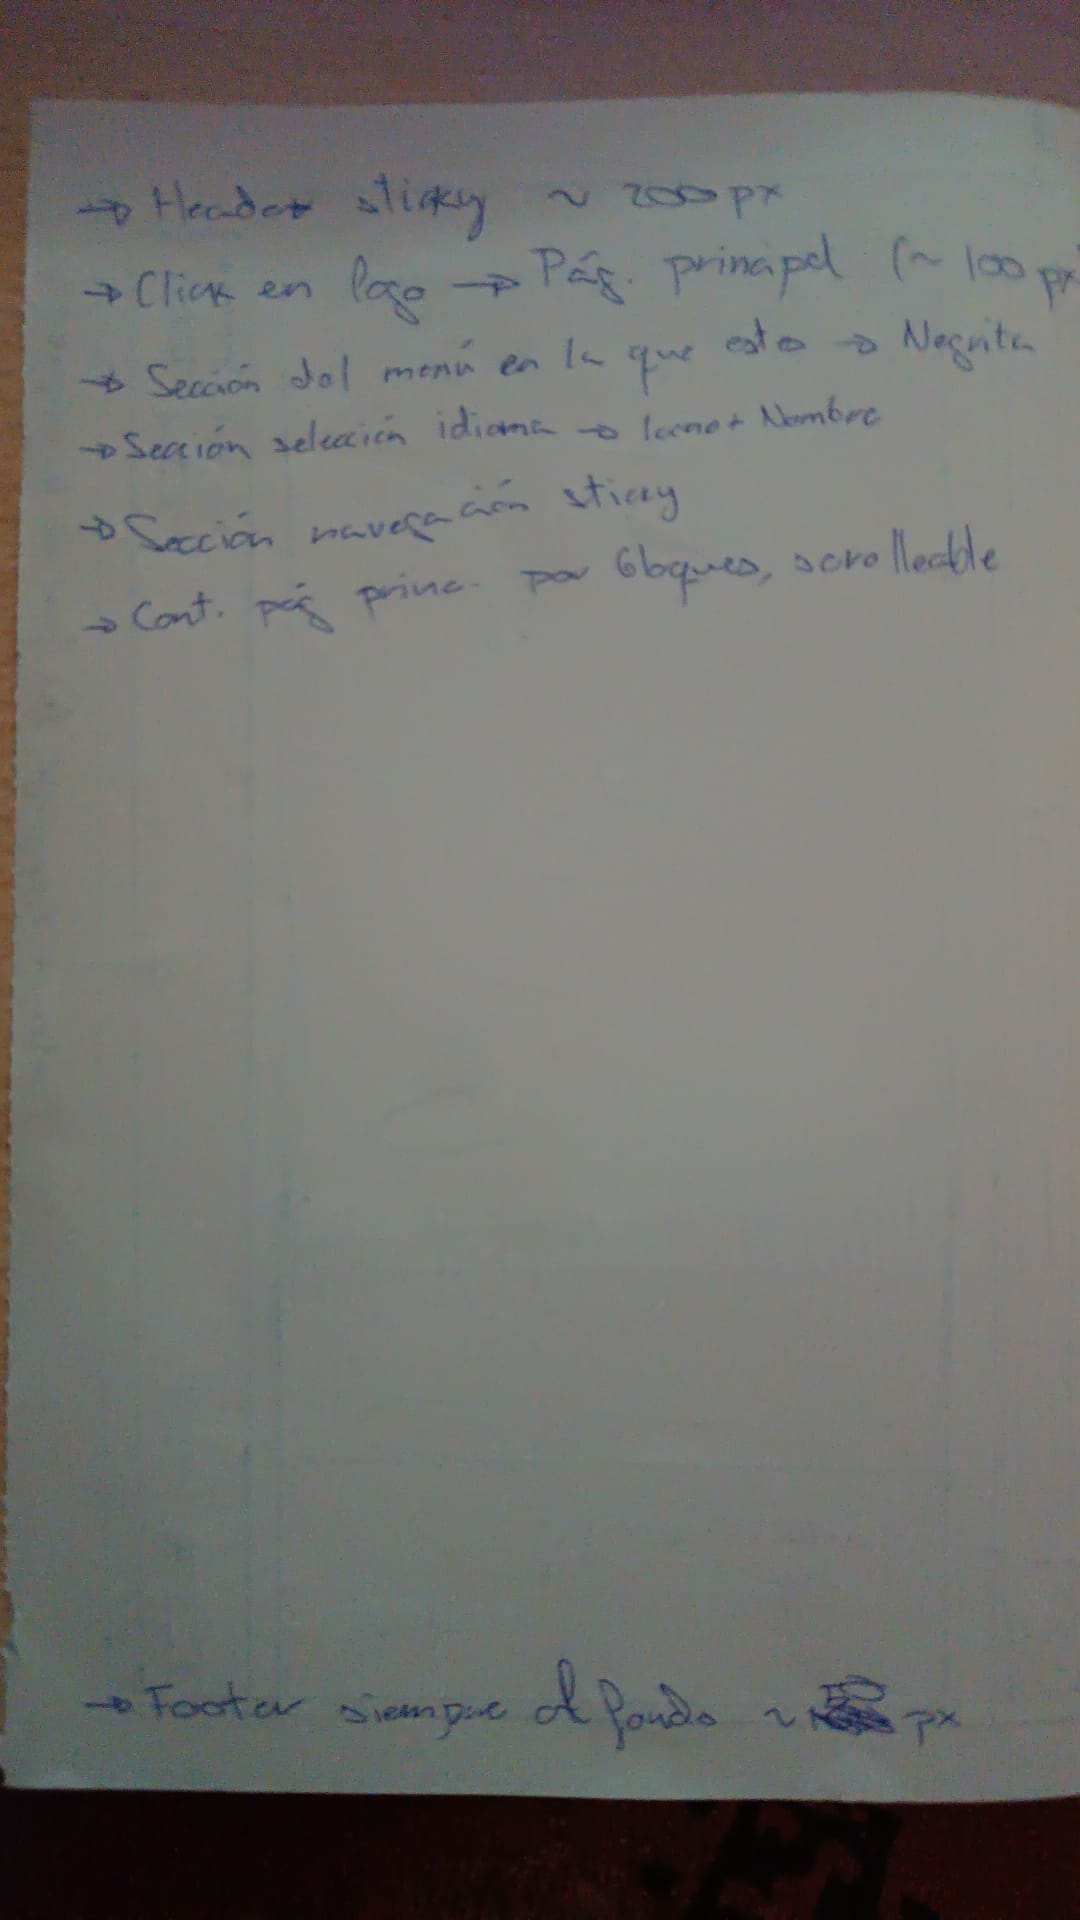 → Header sticky ~ 200 px
→ Click en logo → Pág. principal (~ 100 px)
→ Sección del menú en la que esto → Negrita
→ Sección selección idioma → Icono + Nombre
→ Sección navegación sticky
→ Cont. pág princ. por bloques, scrolleable
→ Footer siempre al fondo ~ px